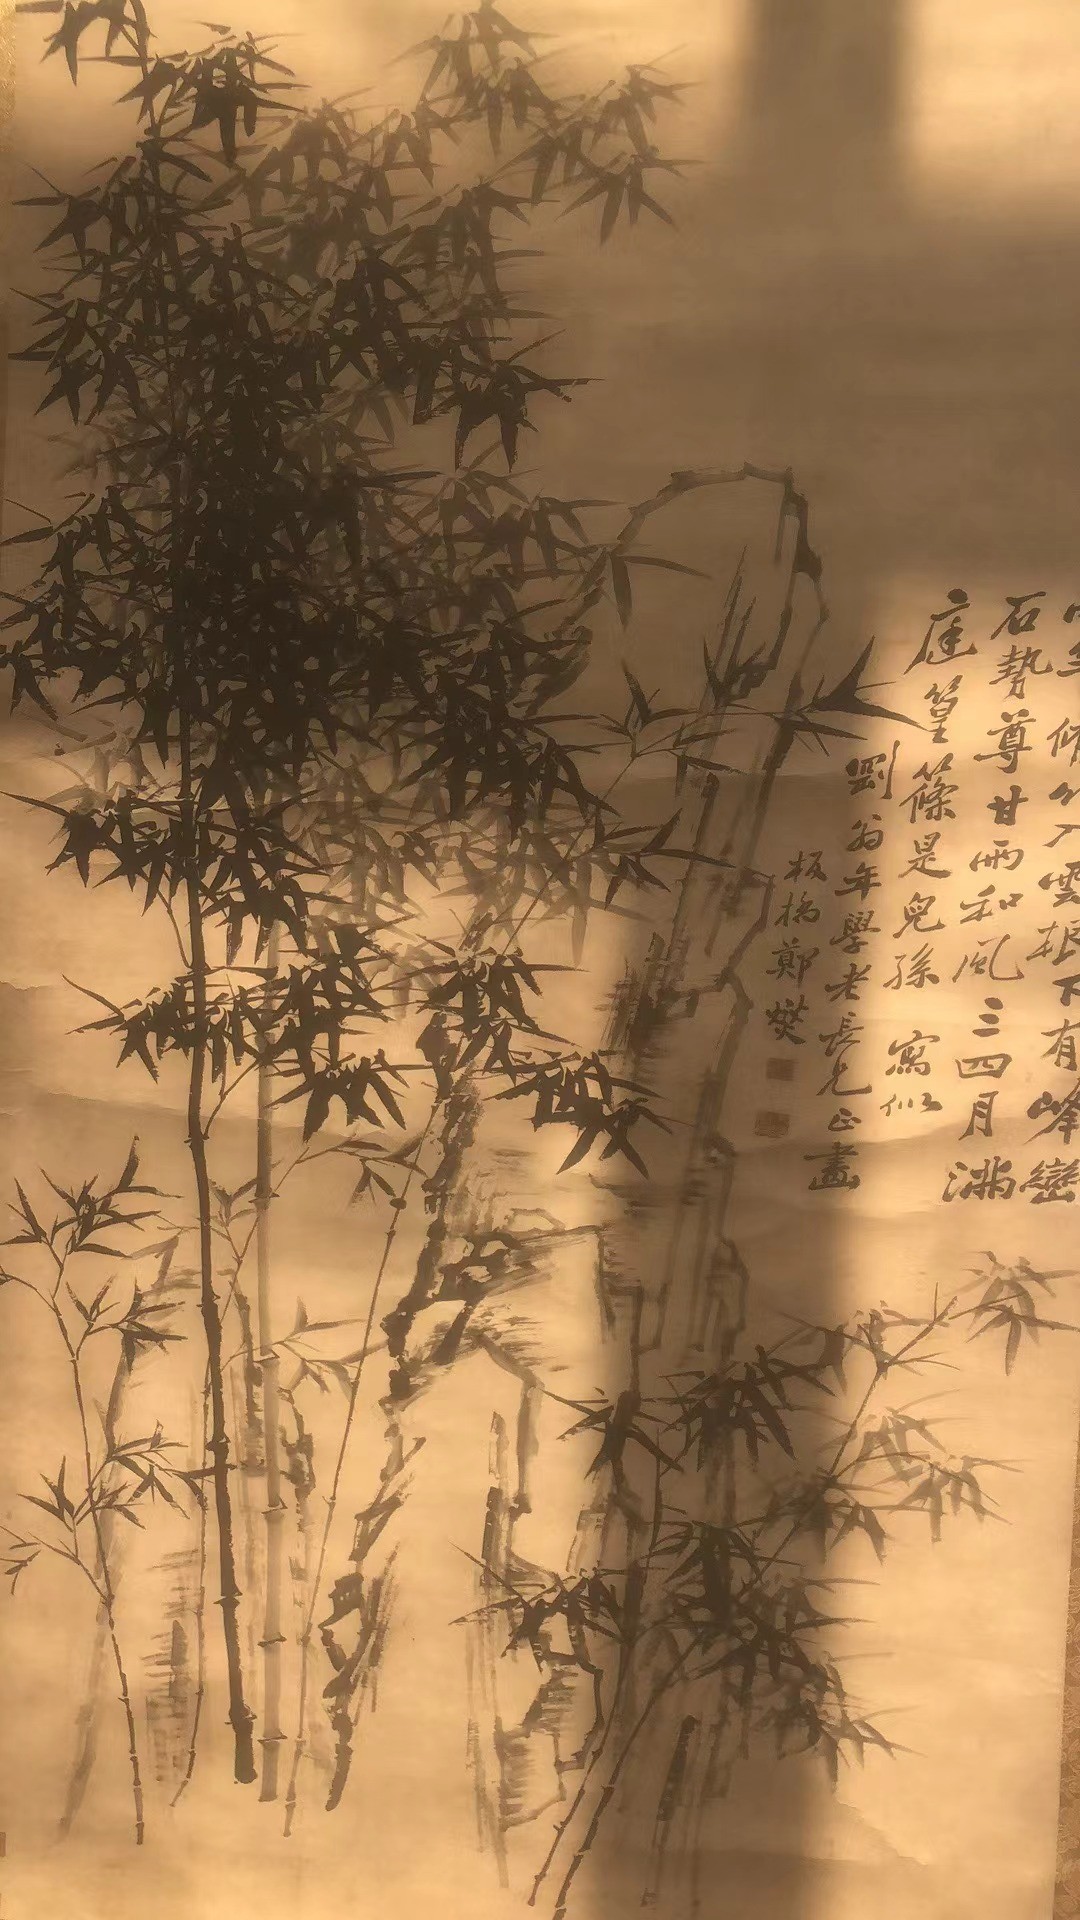 修竹入雲根下有峰巒
石勢尊甘雨和風三四月滿
庭篁篠是兒孫 寫似
劉翁年學老長兄正畫
板橋鄭燮